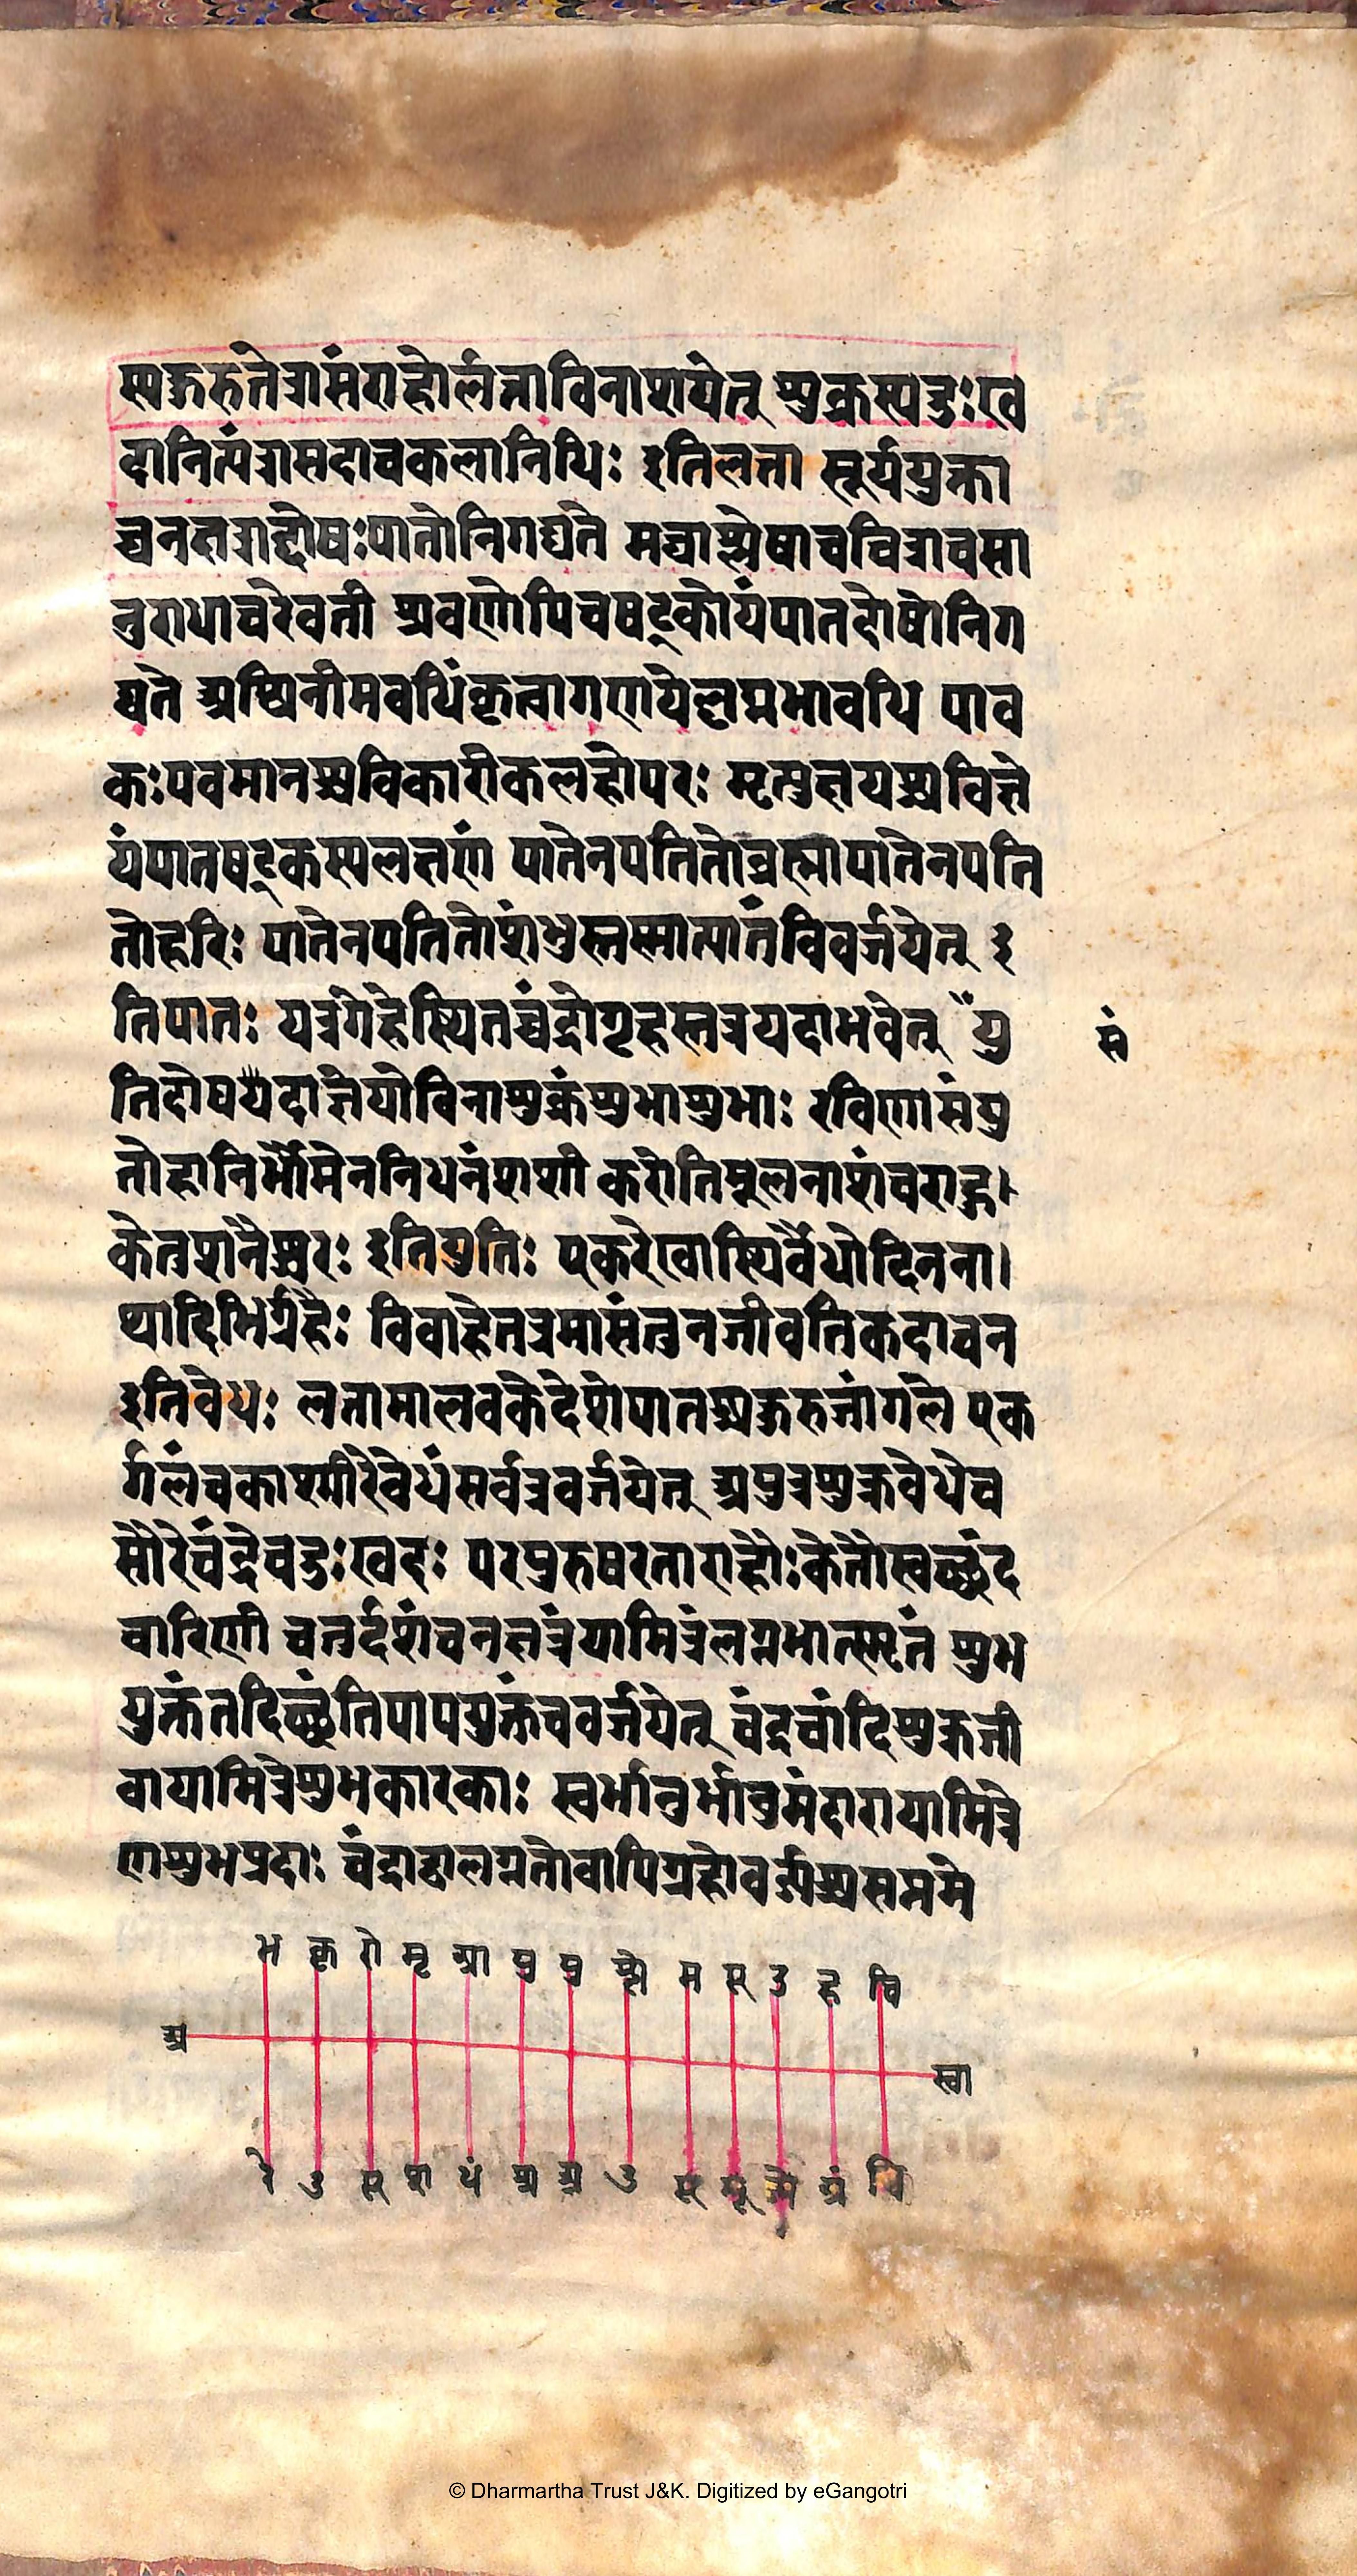 स्पङ्गरुतेत्रासंराहोर्लत्ताविनाशयेत् शुक्रस्यदुःख
दानित्यंत्रासदाचकलानिधिः इतिलत्ता सूर्ययुक्ता
च्चनक्षत्राद्दोषःपातोनिगद्यते मघाश्लेषाचचित्राचसा
नुराधाचरेवती श्रवणोपिचषट्कोयंपातदोषोनिग
द्यते अश्विनीमवधिंकृत्वागणयेल्लग्नभावधि पाव
कःपवमानश्चविकारीकलहोपरः मृत्युक्षयश्चविज्ञे
यंपातषट्कस्यलक्षणं पातेनपतितोब्रह्मापातेनपति
तोहरिः पातेनपतितोशंभुस्तस्मात्पातंविवर्जयेत् इ
तिपातः यत्रगेहेस्थितश्चंद्रोगृहस्तत्रयदाभवेत् यु
सं
तिदोषयदाज्ञेयोविनाशुक्रंशुभाशुभाः रविणासंयु
तोहानिर्भौमेननिधनंशशी करोतिमूलनाशंचराहु
केतुशनैश्चरः इतियुतिः एकरेखास्थिर्वैधोदिनना
थादिभिर्ग्रहैः विवाहेतत्रमासंतुनजीवतिकदाचन
इतिवेधः लत्तामालवकेदेशेपातश्चङ्गरुजांगले एक
र्गलंचकाश्मीरेवेधंसर्वत्रवर्जयेत् अपुत्रशुक्रवेधेच
सौरेचंद्रेचदुःखदः परपुरुषरताराहौःकेतौस्वच्छंद
चारिणी चतुर्दशंचनक्षत्रंयामित्रंलग्नभात्स्मृतं शुभ
युक्तंतदिच्छंतिपापयुक्तंचवर्जयेत् चंद्रचांदिशुक्रजी
वायामित्रेशुभकारकाः स्वर्भानुर्भानुमंदारायामित्रे
णशुभप्रदाः चंद्राद्वालग्नतोवापिग्रहोवर्ज्यश्चसप्तमे
भ कृ रो मृ आ पु पु श्ले म पू उ ह चि
अ
स्वा
रे उ पू श ध श्र अ उ पू मू ज्ये अ वि
© Dharmartha Trust J&K. Digitized by eGangotri